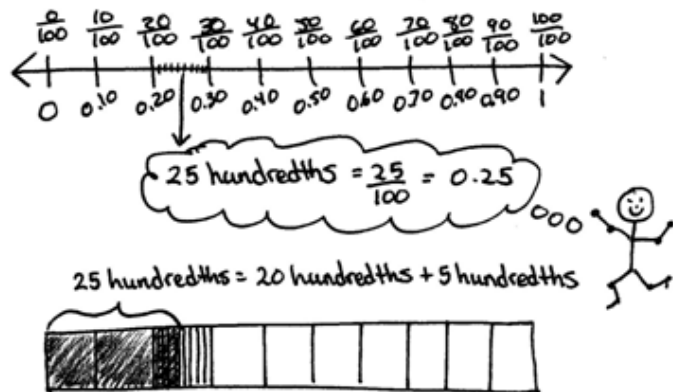 0/100 10/100 20/100 30/100 40/100 50/100 60/100 70/100 80/100 90/100 100/100
0 0.10 0.20 0.30 0.40 0.50 0.60 0.70 0.80 0.90 1
25 hundredths = 25/100 = 0.25
25 hundredths = 20 hundredths + 5 hundredths